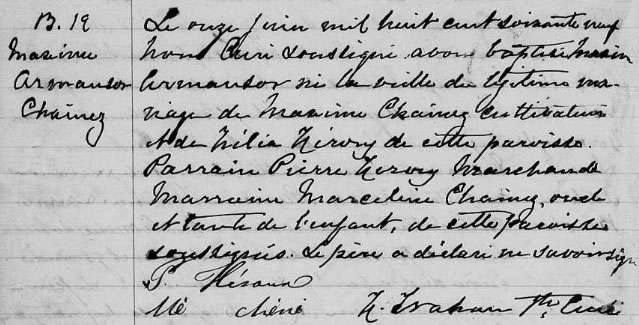 B. 19
Maxime
Armansor
Chainez
Le onze juin mil huit cent soixante neuf
nous Curé soussigné avons baptisé Maxim
Armansor né la veille du légitime ma-
riage de Maxime Chainez cultivateur
et de Zélia Hérony de cette paroisse.
Parrain Pierre Marchand
Marraine Marceline Chainez, oncle
et tante de l'enfant, de cette paroisse
soussignés. Le père a déclaré ne savoir sign
P. Héroux
Ptre Curé